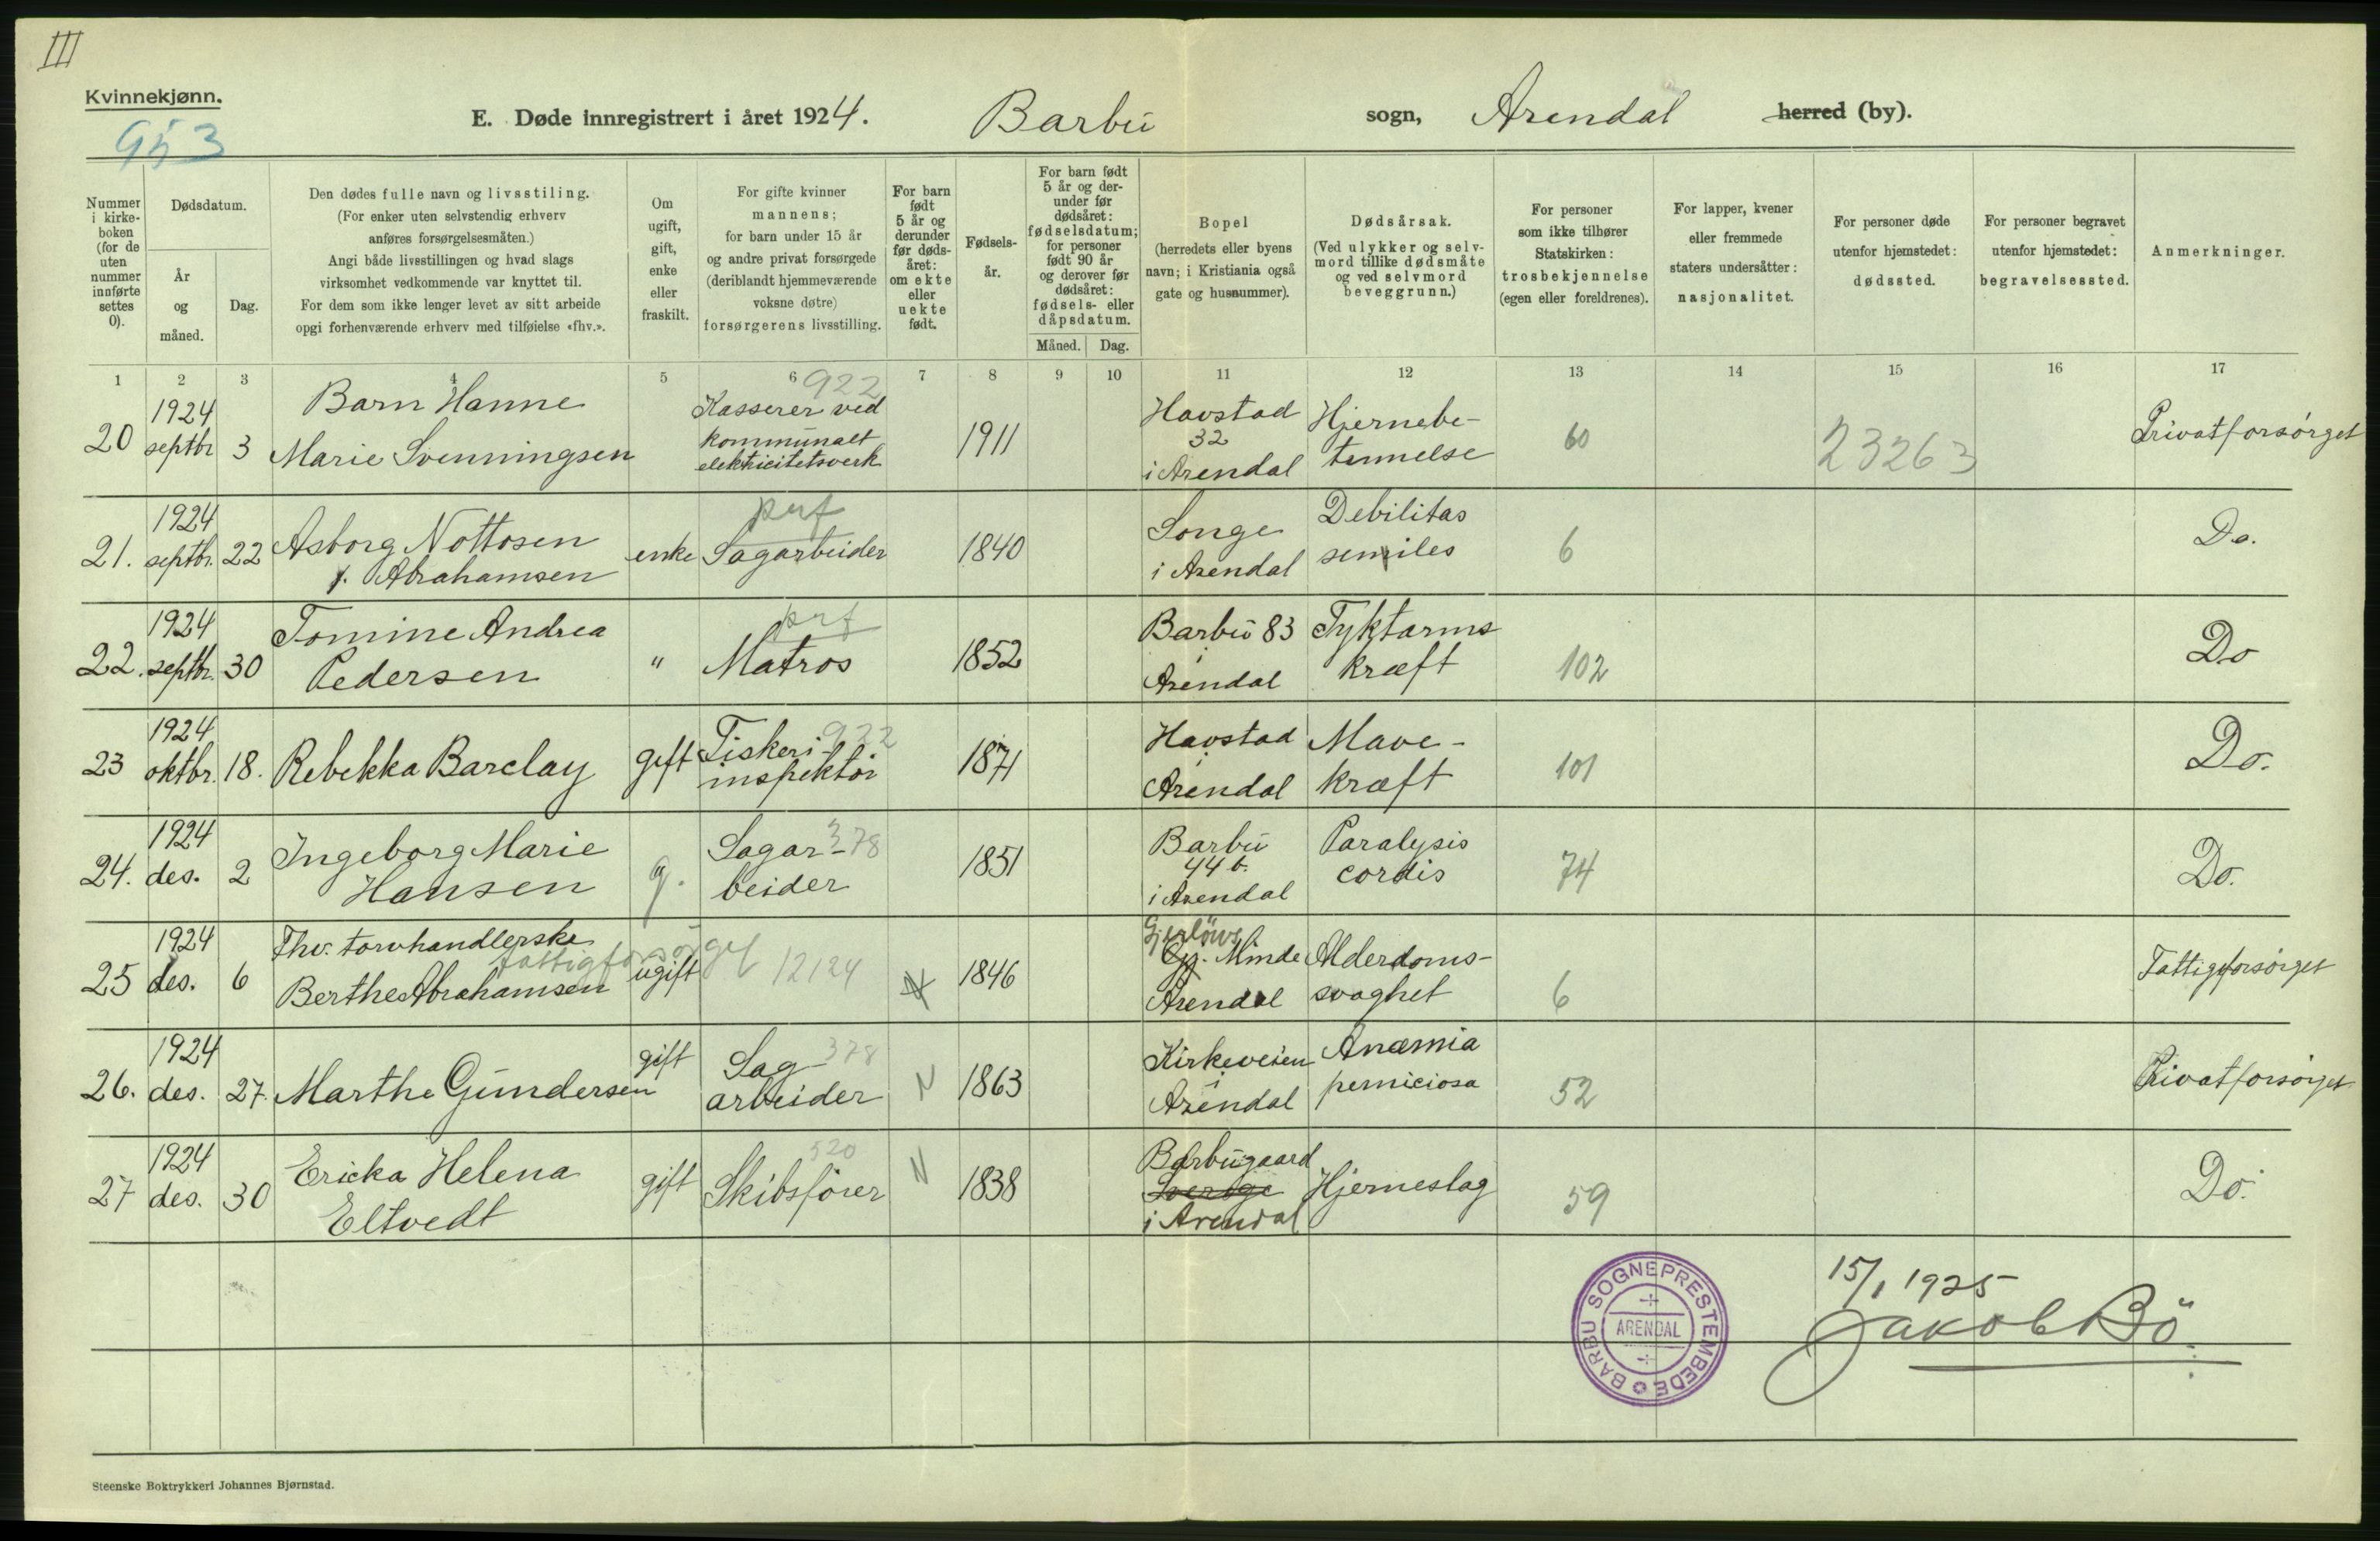 III
Kvinnekjønn.
953
E. Døde innregistrert i året 1924. Barbu sogn, Arendal herred (by).
Nummer i kirke- boken (for de uten nummer innførte settes 0).
Dødsdatum.
År og måned.
Dag.
Den dødes fulle navn og livsstiling.
(For enker uten selvstendig erhverv
anføres forsørgelsesmåten.)
Angi både livsstillingen og hvad slags
virksomhet vedkommende var knyttet til.
For dem som ikke lenger levet av sitt arbeide
opgi forhenværende erhverv med tilføielse «fhv.».
Om ugift, gift, enke eller fraskilt.
For gifte kvinner
mannens;
for barn under 15 år
og andre privat forsørgede
(deriblandt hjemmeværende
voksne døtre)
forsørgerens livsstilling.
For barn født 5 år og derunder før døds- året: om ekte eller uekte født.
Fødsels- år.
For barn født 5 år og der- under før dødsåret: fødselsdatum; for personer født 90 år og derover før dødsåret: fødsels- eller dåpsdatum.
Måned. Dag.
Bopel
(herredets eller byens
navn; i Kristiania også
gate og husnummer).
Dødsårsak.
(Ved ulykker og selv-
mord tillike dødsmåte
og ved selvmord
beveggrunn.)
For personer
som ikke tilhører
Statskirken:
trosbekjennelse
(egen eller foreldrenes).
For lapper, kvener
eller fremmede
staters undersåtter:
nasjonalitet.
For personer døde
utenfor hjemstedet:
dødssted.
For personer begravet
utenfor hjemstedet:
begravelsessted.
Anmerkninger.
1 2 3 4 5 6 7 8 9 10 11 12 13 14 15 16 17
20 1924 septbr 3 Barn Hanne Marie Svenningsen 922 Kasserer ved kommunalt elektricitetsverk 1911 Havstad 32 i Arendal Hjernebe- tennelse 60 23263 Privatforsørget
21. 1924 septbr. 22 Asborg Nottosen f. Abrahamsen enke prf Sagarbeider 1840 Songe i Arendal Debilitas seniles 6 Do.
22. 1924 septbr. 30 Tomine Andrea Pedersen " prf Matros 1852 Barbu 83 Arendal Tyktarms kræft 102 Do
23 1924 oktbr. 18. Rebekka Barclay gift 922 Fiskeri- inspektør 1871 Havstad Arendal Mave- kræft 101 Do.
24. 1924 des. 2 Ingeborg Marie Hansen g. 378 Sagar- beider 1851 Barbu 44 b. i Arendal Paralysis cordis 74 Do.
25 1924 des. 6 Fhv. torvhandlerske fattigforsørget Berthe Abrahamsen ugift 12124 1846 Gjerløws Minde Arendal Alderdoms- svaghet 6 Fattigforsørget
26. 1924 des. 27. Marthe Gundersen gift 378 Sag- arbeider N 1863 Kirkeveien Arendal Anæmia perniciosa 52 Privatforsørget
27 1924 des. 30 Ericka Helena Eltvedt gift 520 Skibsfører N 1838 Barbugaard i Arendal Hjerneslag 59 Do.
BARBU SOGNEPRESTEMBEDE
ARENDAL
15/1 1925
Jakob Bö
Steenske Boktrykkeri Johannes Bjørnstad.